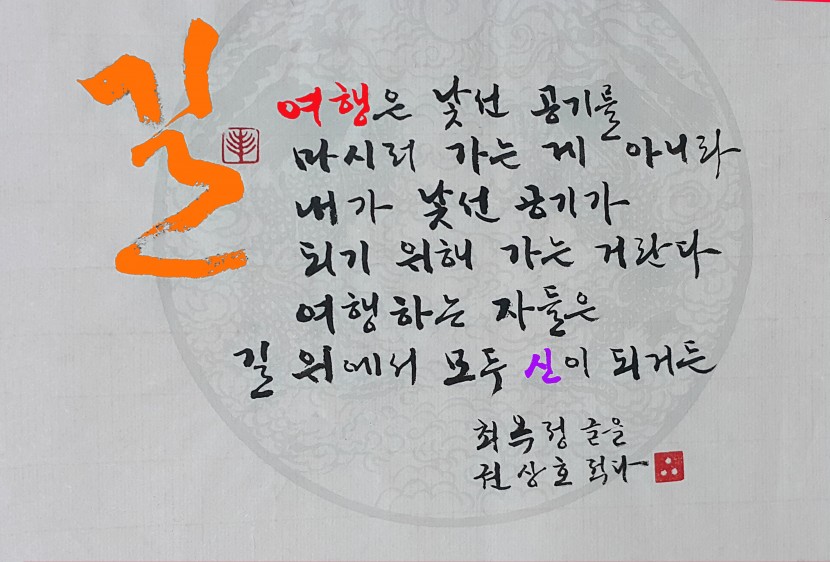 길
여행은 낯선 공기를
마시러 가는 게 아니라
내가 낯선 공기가
되기 위해 가는 거란다
여행하는 자들은
길 위에서 모두 신이 되거든
최옥정 글을
권상호 적다